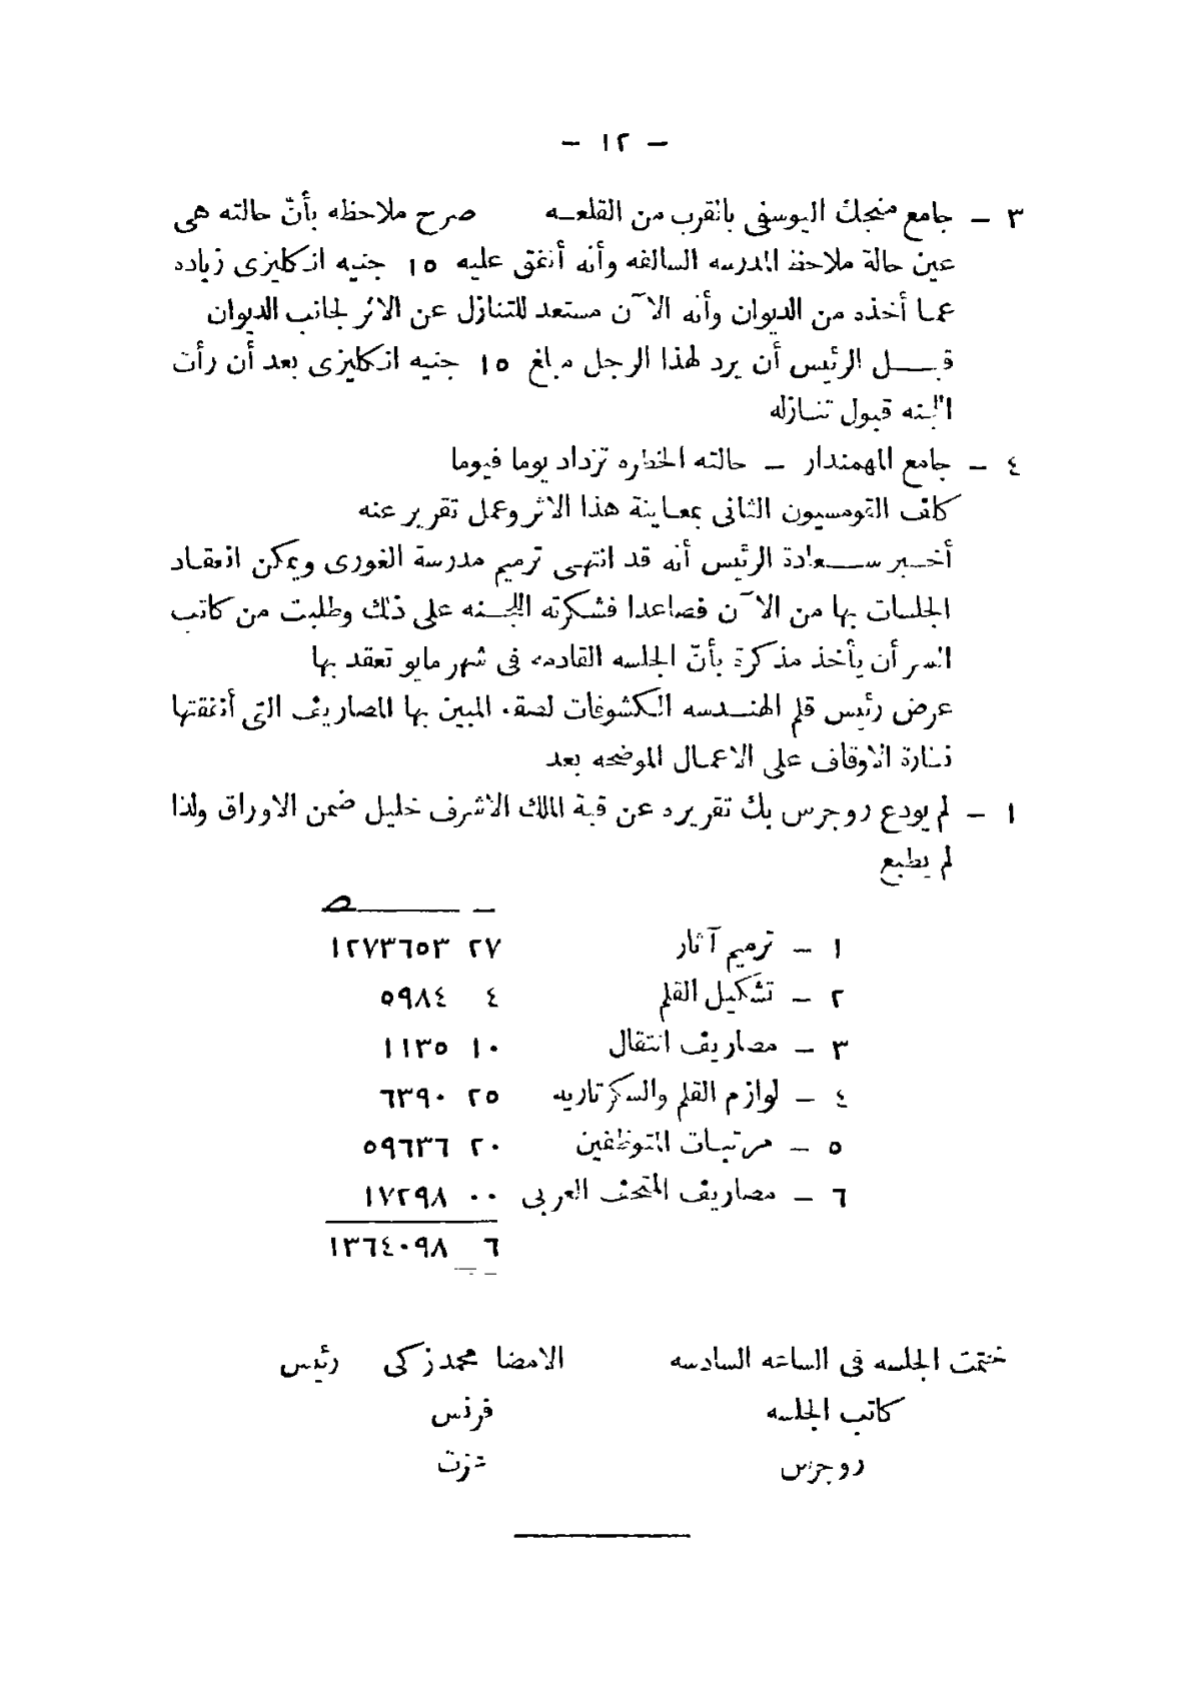 - ١٢ -
٣ - جامع منجك اليوسفى بالقرب من القلعـه صرح ملاحظه بأنّ حالته هى
عين حالة ملاحظ المدرسه السالفه وأنه أنفق عليه ١٥ جنيه انكليزى زياده
عما أخذه من الديوان وأنه الآن مستعد للتنازل عن الاثر لجانب الديوان
قبـــل الرئيس أن يرد لهذا الرجل مبلغ ١٥ جنيه انكليزى بعد أن رأت
اللجنه قبول تنـازله
٤ - جامع المهمندار - حالته الخطره تزداد يوما فيوما
كلف القومسيون الثانى بمعـاينة هذا الاثر وعمل تقرير عنه
أخـبر ســعادة الرئيس أنه قد انتهـى ترميم مدرسة الغورى ويمكن انعقـاد
الجلسات بها من الآن فصاعدا فشكرته اللجـنه على ذلك وطلبت من كاتب
السر أن يأخذ مذكرة بأنّ الجلسه القادمه فى شهر مايو تعقد بها
عرض رئيس قلم الهنـدسه الكشوفات لصقه المبين بها المصاريف التى أنفقتها
نظارة الاوقاف على الاعمـال الموضحه بعد
١ - لم يودع روجرس بك تقريره عن قبة الملك الاشرف خليل ضمن الاوراق ولذا
لم يطبع
١ - ترميم آثار ٢٧ ١٢٧٣٦٥٣
٢ - تشكيل القلم ٤ ٥٩٨٤
٣ - مصاريف انتقال ١٠ ١١٣٥
٤ - لوازم القلم والسكرتاريه ٢٥ ٦٣٩٠
٥ - مرتبـات المتوظفين ٢٠ ٥٩٦٣٦
٦ - مصاريف المتحف العربى ٠٠ ١٧٢٩٨
٦ ١٣٦٤٠٩٨
ختمت الجلسه فى الساعه السادسه الامضا محمد زكى رئيس
كاتب الجلسه فرنس
روجرس